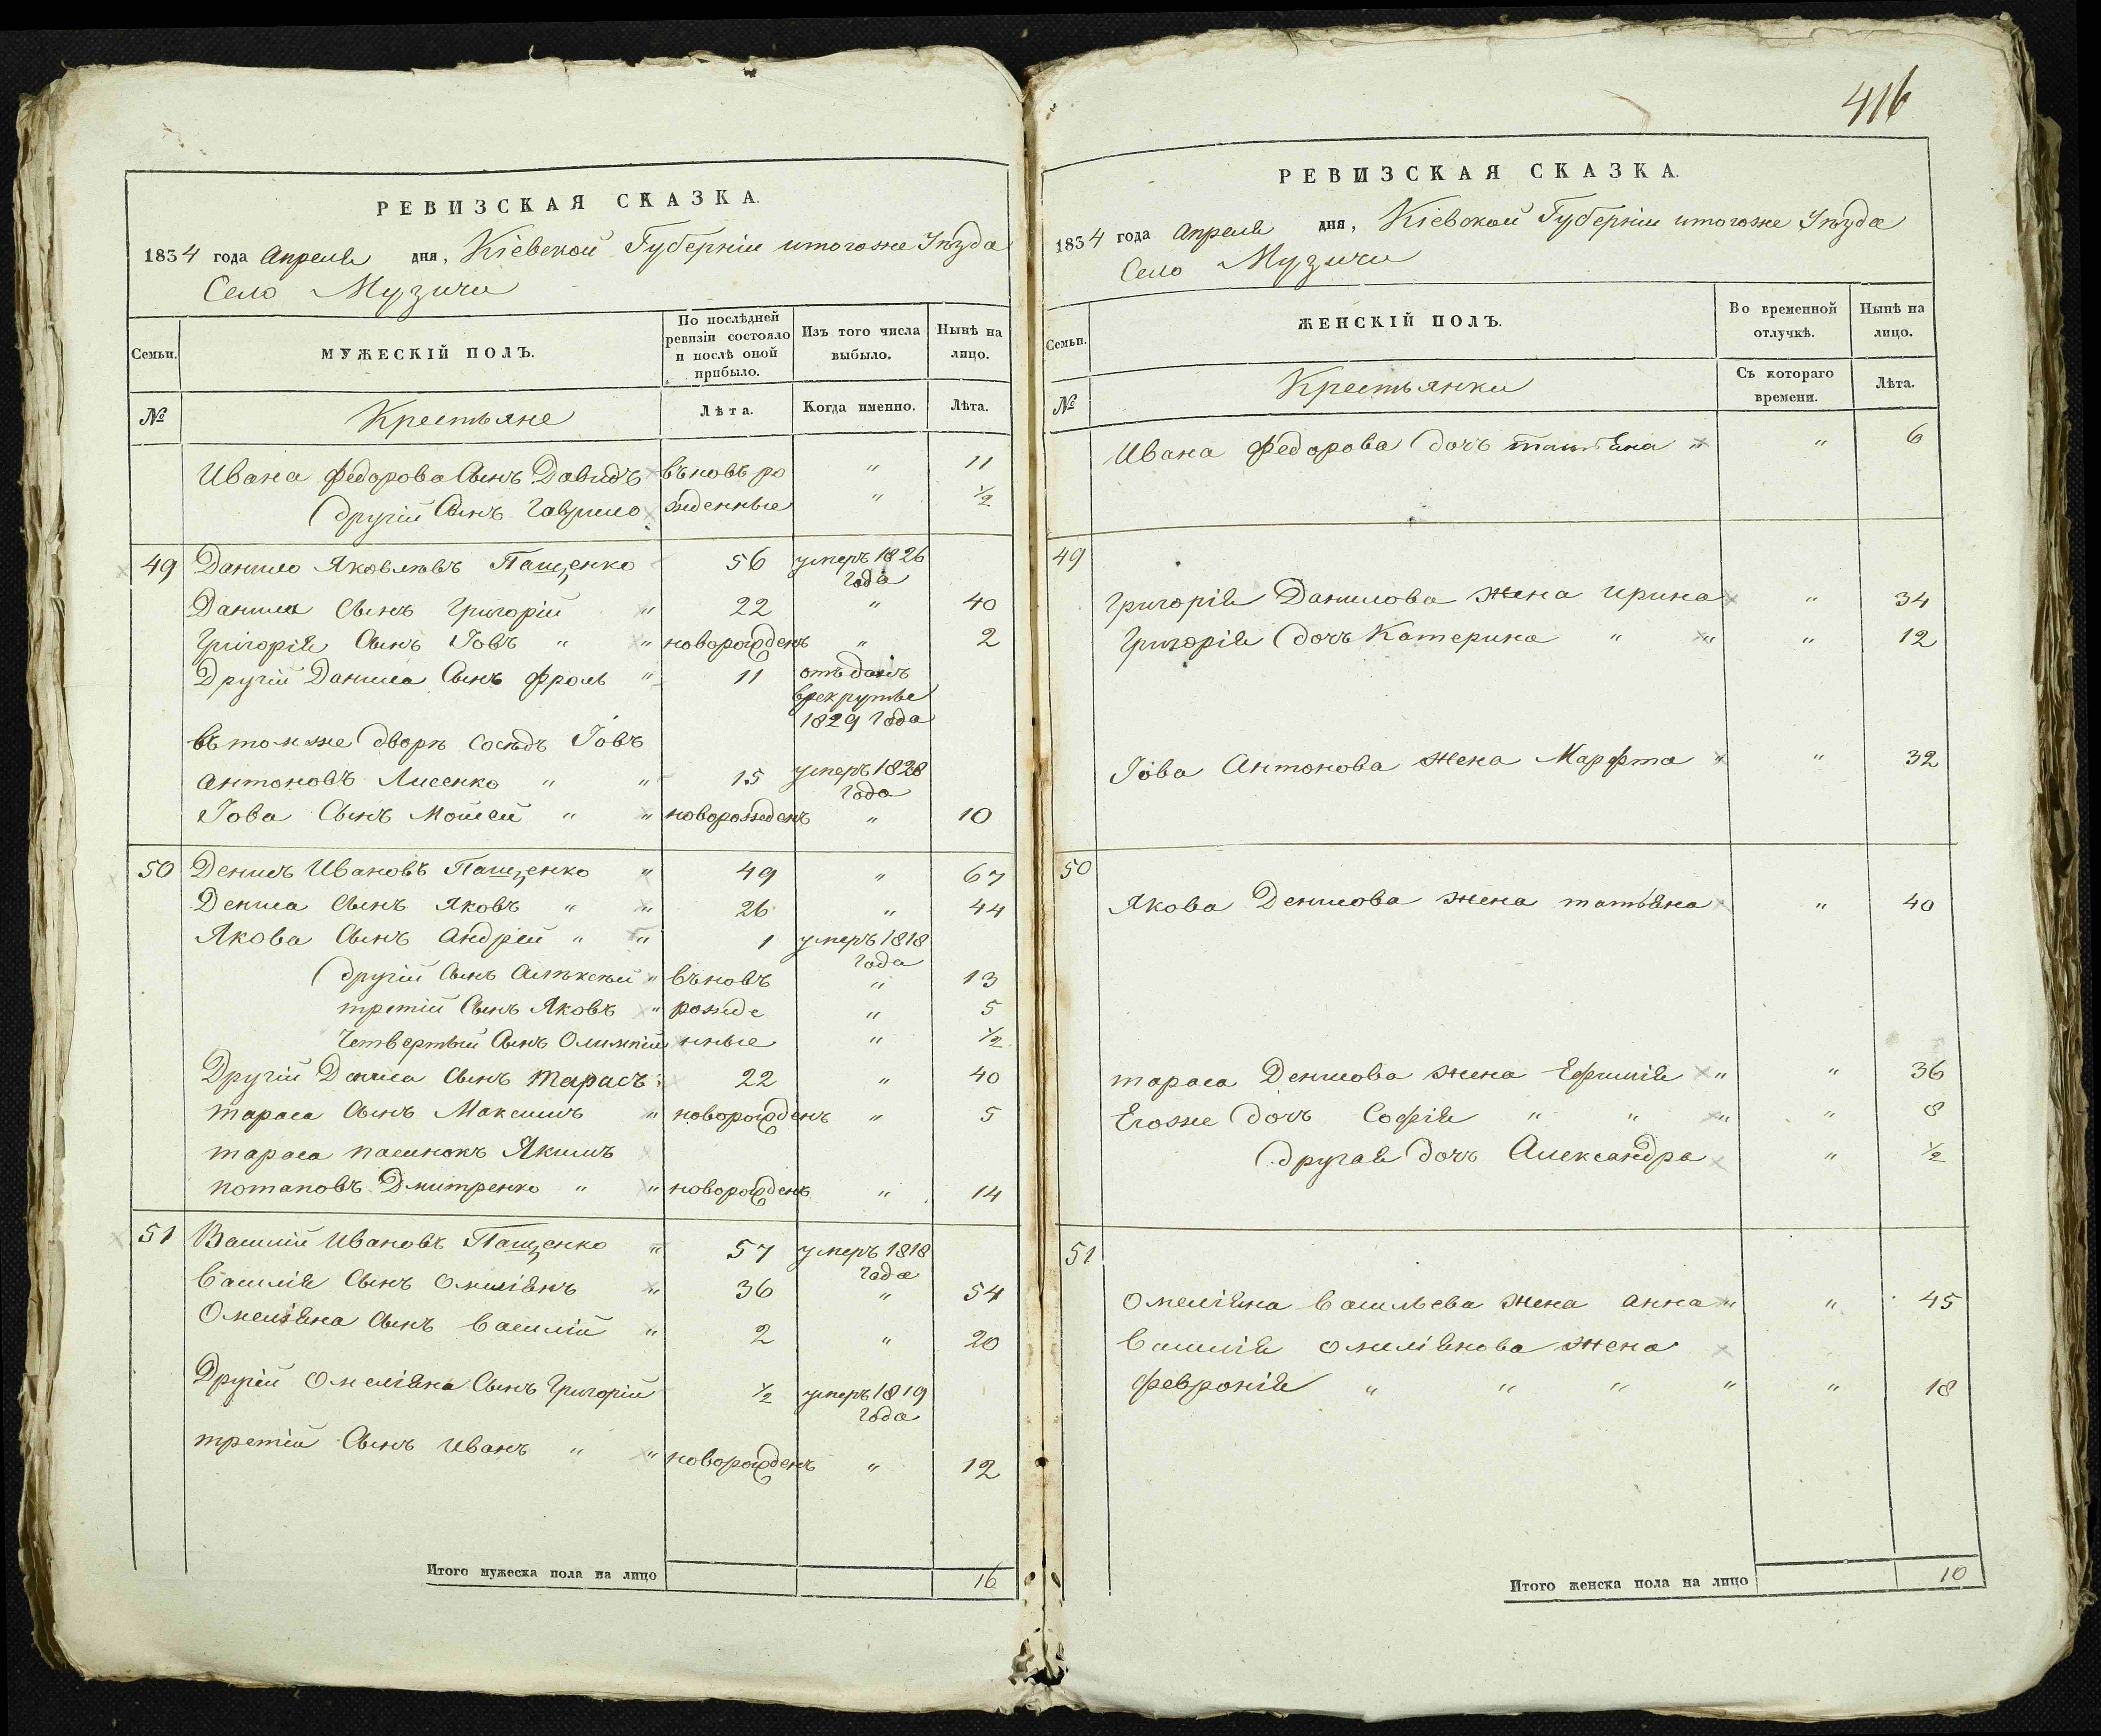 416
РЕВИЗСКАЯ СКАЗКА.
1834 года Апреля дня, Кіевской Губерніи итогоже Уѣзда
Село Музичи
Семьи. МУЖЕСКІЙ ПОЛЪ. По послѣдней ревизіи состояло и послѣ оной прибыло. Изъ того числа выбыло. Нынѣ на лицо.
№ Крестьяне Лѣта. Когда именно. Лѣта.
Ивана Федорова Сынъ Давидъ въновь ро " 11
другій Сынъ Гаврило жденные " ½
49 Данило Яковлевъ Пащенко 56 умеръ 1826 года
Данила Сынъ Григорій " 22 " 40
Григорія Сынъ Іовъ " " новорожденъ " 2
Другій Данила Сынъ Фролъ " 11 отъданъ врекрутъе 1829 года
втомже дворѣ Сосѣдъ Іовъ
Антоновъ Лисенко " " 15 умеръ 1828 года
Іова Сынъ Мойсей " " новорожденъ " 10
50 Денисъ Ивановъ Пащенко " 49 " 67
Дениса Сынъ Яковъ " " 26 " 44
Якова Сынъ Андрей " " 1 умеръ 1818 года
другій Сынъ Алѣксѣй " въновъ " 13
третій Сынъ Яковъ " рожде " 5
Четвертый Сынъ Олимпій нные " ½
Другій Дениса Сынъ Тарасъ 22 " 40
Тараса Сынъ Максимъ " новорожденъ " 5
Тараса пасынокъ Якимъ
Потаповъ Дмитренко " " новорожденъ " 14
51 Василій Ивановъ Пащенко " 57 умеръ 1818 года
Василія Сынъ Омиліянъ " 36 " 54
Омеліяна Сынъ Василій " 2 " 20
Другій Омеліяна Сынъ Григорій ½ умеръ 1819 года
третій Сынъ Иванъ " " новорожденъ " 12
Итого мужеска пола на лицо 16
РЕВИЗСКАЯ СКАЗКА.
1834 года Апреля дня, Кіевской Губерніи итогоже Уѣзда
Село Музичи
Семьи. ЖЕНСКІЙ ПОЛЪ. Во временной отлучкѣ. Нынѣ на лицо.
№ Крестьянки Съ котораго времени. Лѣта.
Ивана Федорова дочь татіяна " " 6
49
Григорія Данилова жена Ирина " 34
Григорія дочь Катерина " " " 12
Іова Антонова жена Марфта " " 32
50
Якова Денисова жена татьяна " 40
тараса Денисова жена Ефимія " " 36
Егоже дочь Софія " " " " 8
другая дочь Александра " ½
51
Омеліяна Васильева жена анна " " 45
Василія Омиліянова жена
Февронія " " " " " 18
Итого женска пола на лицо 10